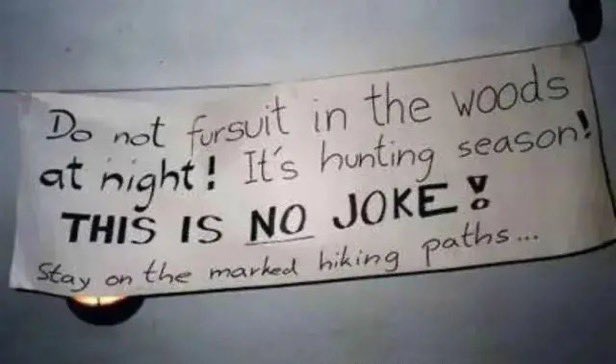 Do not fursuit in the woods
at night! It's hunting season!
THIS IS NO JOKE!
Stay on the marked hiking paths...